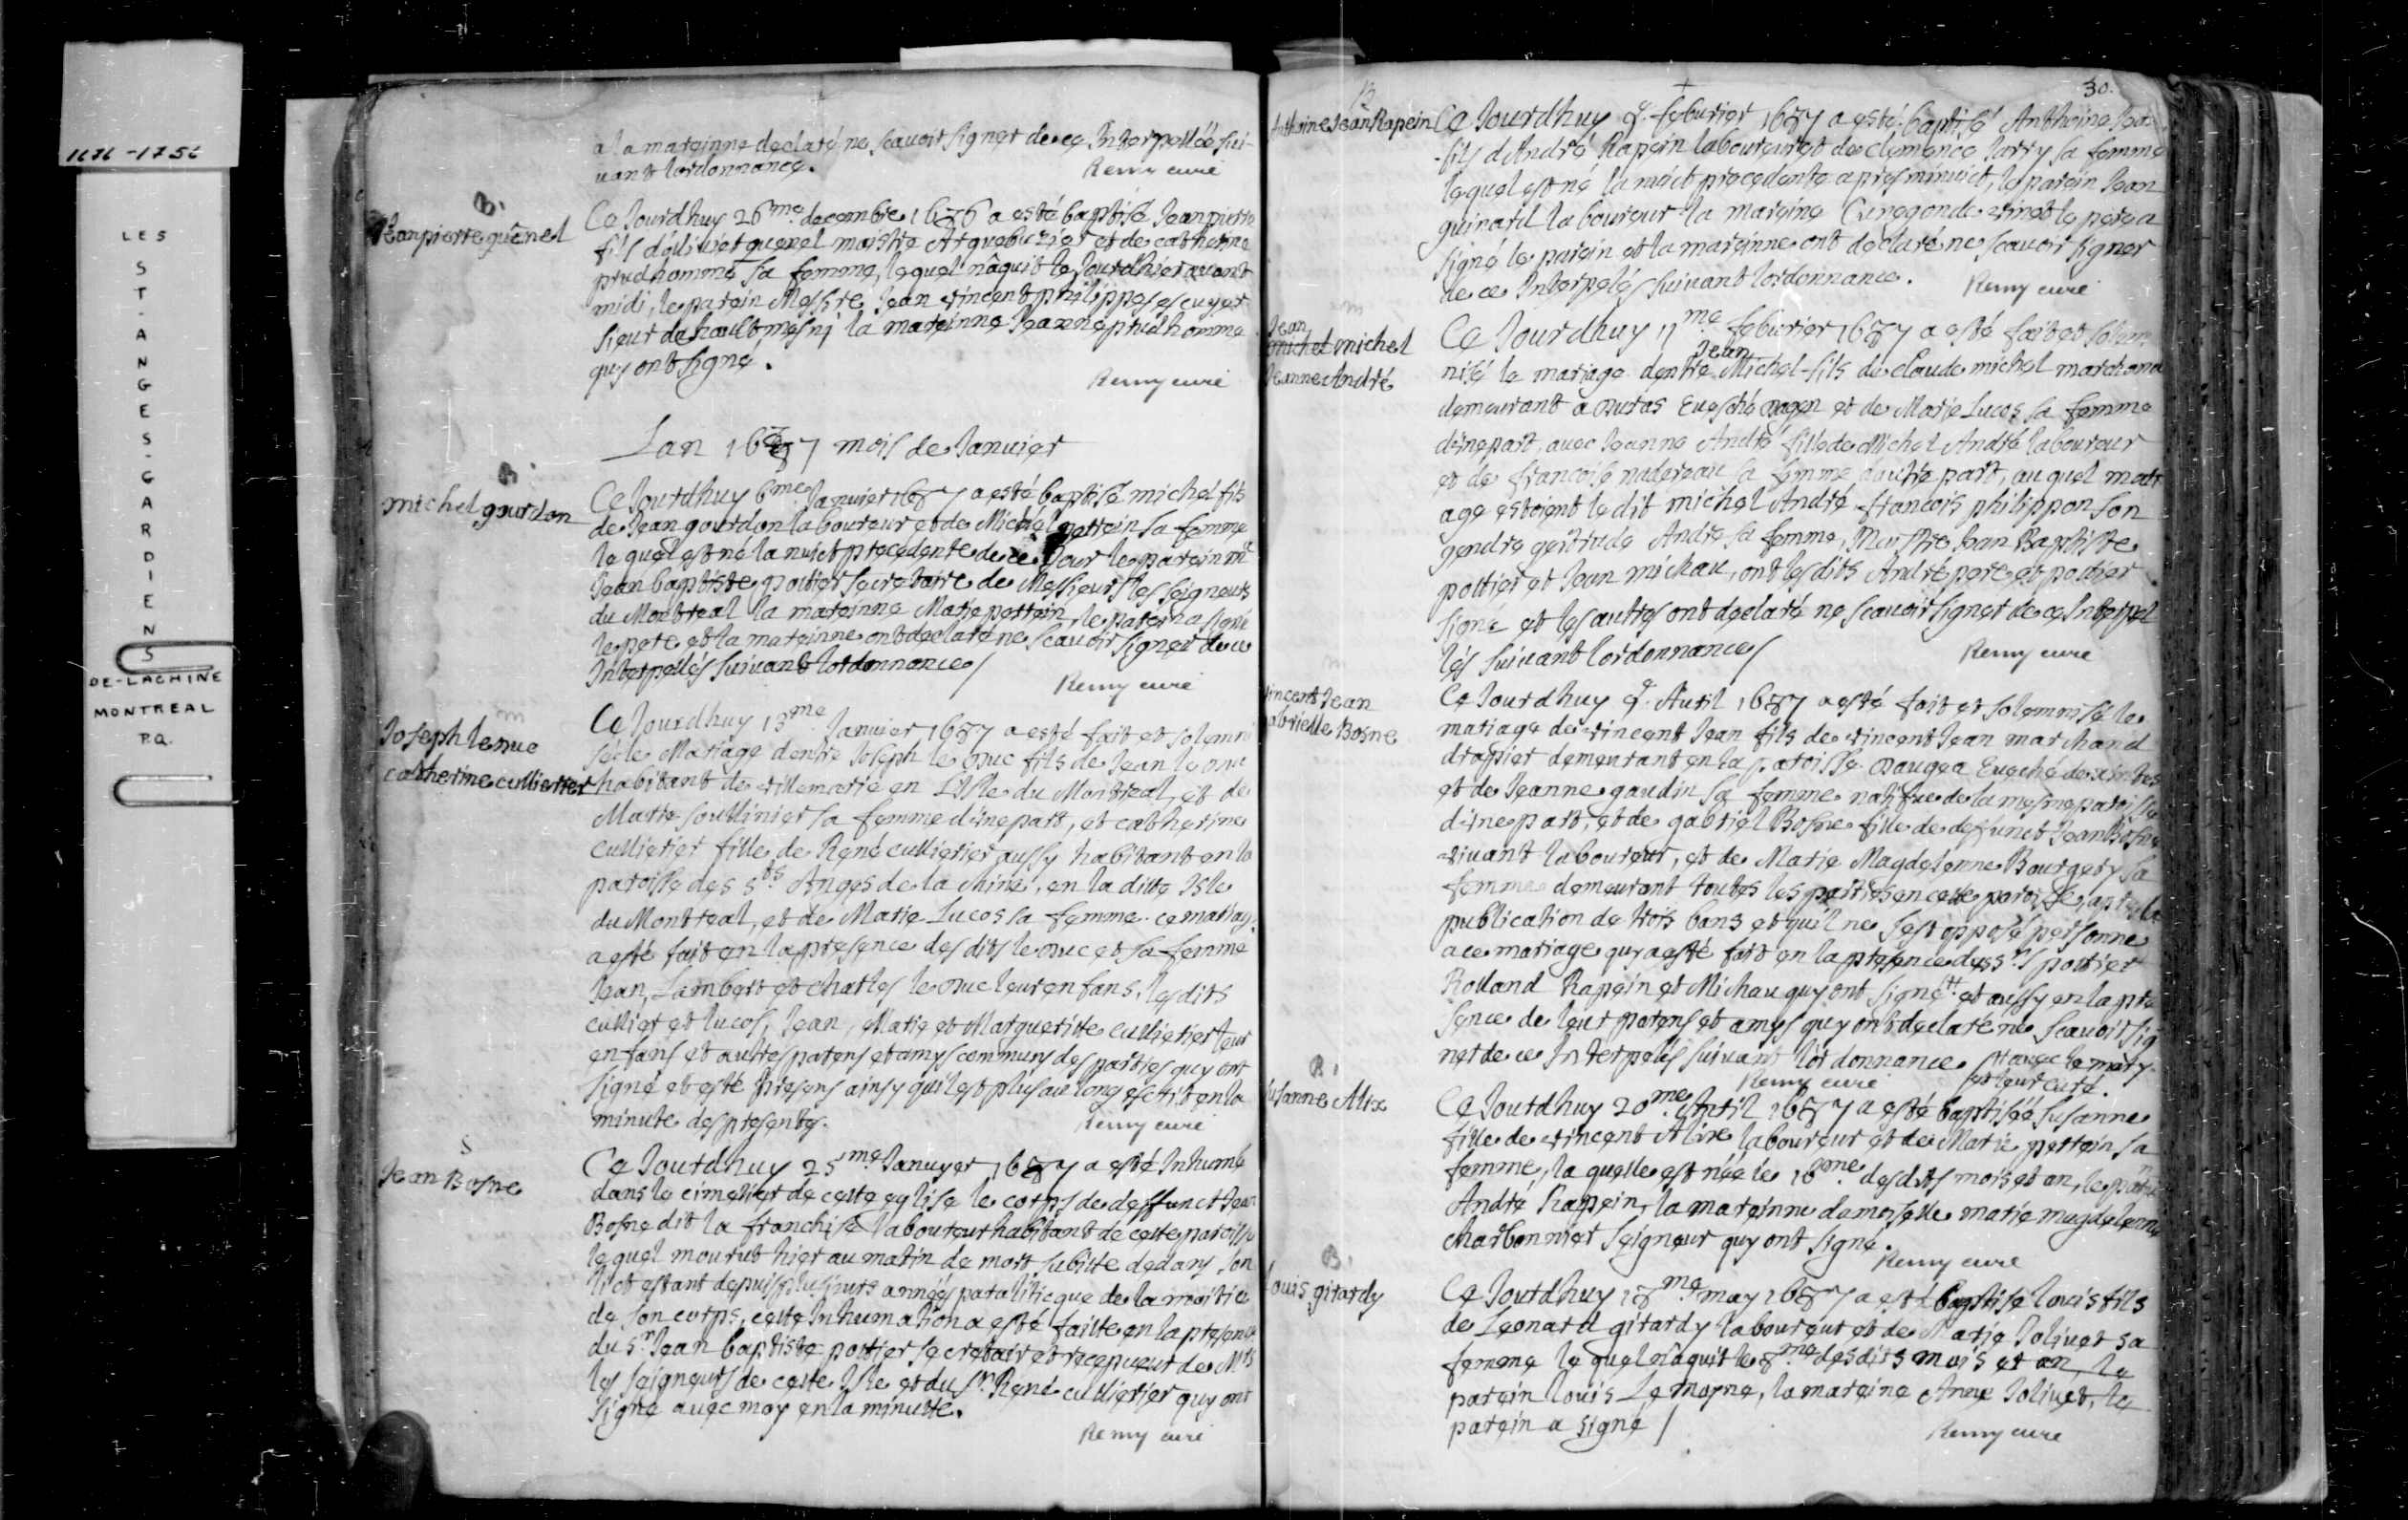 1676 - 1756
LES
ST-ANGES-GARDIENS
DE-LACHINE
MONTREAL
P.Q.
a la mareinne declaré ne scauoir signer de ce Interpellée sui-
uant lordonnance.
Remy curé
B.
Jean pierre quenel
Ce Jourdhuy 26me decembre 1686 a esté baptisé Jean pierre
fils doliuier quenel maistre Arquebuzier et de catherine
prudhomme sa femme, lequel nâquit le Jourdhier auant
midi, le parein Messire Jean vincent philippes escuyer
sieur de hault mesni la mareinne Jeanne prudhomme
quy ont signé.
Remy curé
Lan 1687 mois de Januier
B.
michel gourdon
Ce Jourdhuy 6me Januier 1687 a esté baptisé michel fils
de Jean gourdon laboureur et de Michel perrein sa femme
le quel est né la nuict precedente de ce Jour le parein mr
Jean baptiste pottier secretaire de Messieurs les seigneurs
du Montreal la mareinne Marie perrein, le parein a signé
le pere et la mareinne ont declaré ne scauoir signer de ce
Interpelés suiuant lordonnance /
Remy curé
m
Joseph le duc
catherine cullierier
Ce Jourdhuy 13me Januier 1687 a esté fait et solemni
sé le Mariage dentre Joseph le duc fils de Jean le duc
habitant de villemarie en LIsle du Montreal, et de
Marie soullinier sa femme dune part, et catherine
cullierier fille de René cullierier aussy habitant en la
paroisse des Sts Anges de la chine, en la ditte Isle
du Montreal, et de Marie Lucos sa femme. ce mariage
a esté fait en la presence des dits le duc et sa femme
Jean, Lambert et charles le duc leur enfans, les dits
cullier et lucos, Jean, Marie et Margueritte cullierier leur
enfans et autres parens et amys communs des parties quy ont
signé et esté presens ainsy quil est plus au long escrit en la
minute des presentes.
Remy curé
S
Jean Bosne
Ce Jourdhuy 25me Januyer 1687 a esté Inhumé
dans le cimetier de ceste eglise le corps de deffunct Jean
Bosne dit la franchise laboureur habitant de ceste paroisse
le quel mourut hier au matin de mort subitte dedans son
lict estant depuis plusieurs années paralitique de la moitié
de son corps, ceste Inhumation a esté faitte en la presence
du Sr Jean baptiste pottier secretaire et recepueur de Mrs
les seigneurs de ceste Isle et du Sr René cullierier quy ont
signé auec moy en la minutte.
Remy curé
30.
Anthoine Jean Rapein
Ce Jourdhuy 9. feburier 1687 a esté baptisé Anthoine Jean
fils dAndré Rapein laboureur et de clemence Jarry sa femme
lequel est né la nuict precedente apres minuict, le parein Jean
quinard laboureur la mareine Cunegonde vinet le pere a
signé le parein et la mareinne ont declaré ne scauoir signer
de ce Interpelés suiuant lordonnance.
Remy curé
Jean
michel michel
Jeanne André
Ce Jourdhuy 11me feburier 1687 a esté fait et solem
nisé le mariage dentre Jean Michel fils de claude michel marchand
demeurant a duras Euesché dagen et de Marie Lucos sa femme
dune part, auec Jeanne André fille de Michel André laboureur
et de francoise nadereau sa femme dautre part, au quel mari
age estoient le dit michel André francois philippon son
gendre gertrude André sa femme, Messire Jean Baptiste
pottier et Jean michau, ont les dits André pere et pottier
signé et les autres ont declaré ne scauoir signer de ce Interpel
lés suiuant lordonnance /
Remy curé
vincent Jean
gabrielle Bosne
Ce Jourdhuy 9. Auril 1687 a esté fait et solemnisé le
mariage de vincent Jean fils de vincent Jean marchand
drapier demeurant en la paroisse daugea Eueché de xintes
et de Jeanne gaudin sa femme natifue de la mesme paroisse
dune part, et de gabriel Bosne fille de deffunct Jean Bosne
viuant laboureur, et de Marie Magdelenne Bourgery sa
femme demeurant toutes les parties en ceste paroisse, apres la
publication de trois bans et quil ne sest opposé personne
a ce mariage quy a esté fait en la presence des srs pottier
Rolland Rapein et Michau quy ont signé # et aussy en la pre
sence de leur parens et amys quy ont declaré ne scauoir sig
ner de ce Interpelés suiuant lordonnance # auec le mary
et leur curé.
Remy curé
B.
susanne Alix
Ce Jourdhuy 20me Auril 1687 a esté baptiséé susanne
fille de vincent Alix laboureur et de Marie perrein sa
femme, la quelle est née le 16me des dits mois et an, le parein
André Rapein, la mareinne damoiselle marie magdelenne
charbonnier seigneur quy ont signé.
Remy curé
B.
Louis girardy
Ce Jourdhuy 18me may 1687 a esté baptisé louis fils
de Leonard girardy laboureur et de Marie Joliuet sa
femme le quel naquit le 8me des dits mois et an, le
parein louis Le moyne, la mareine Anne Joliuet, le
parein a signé /
Remy curé